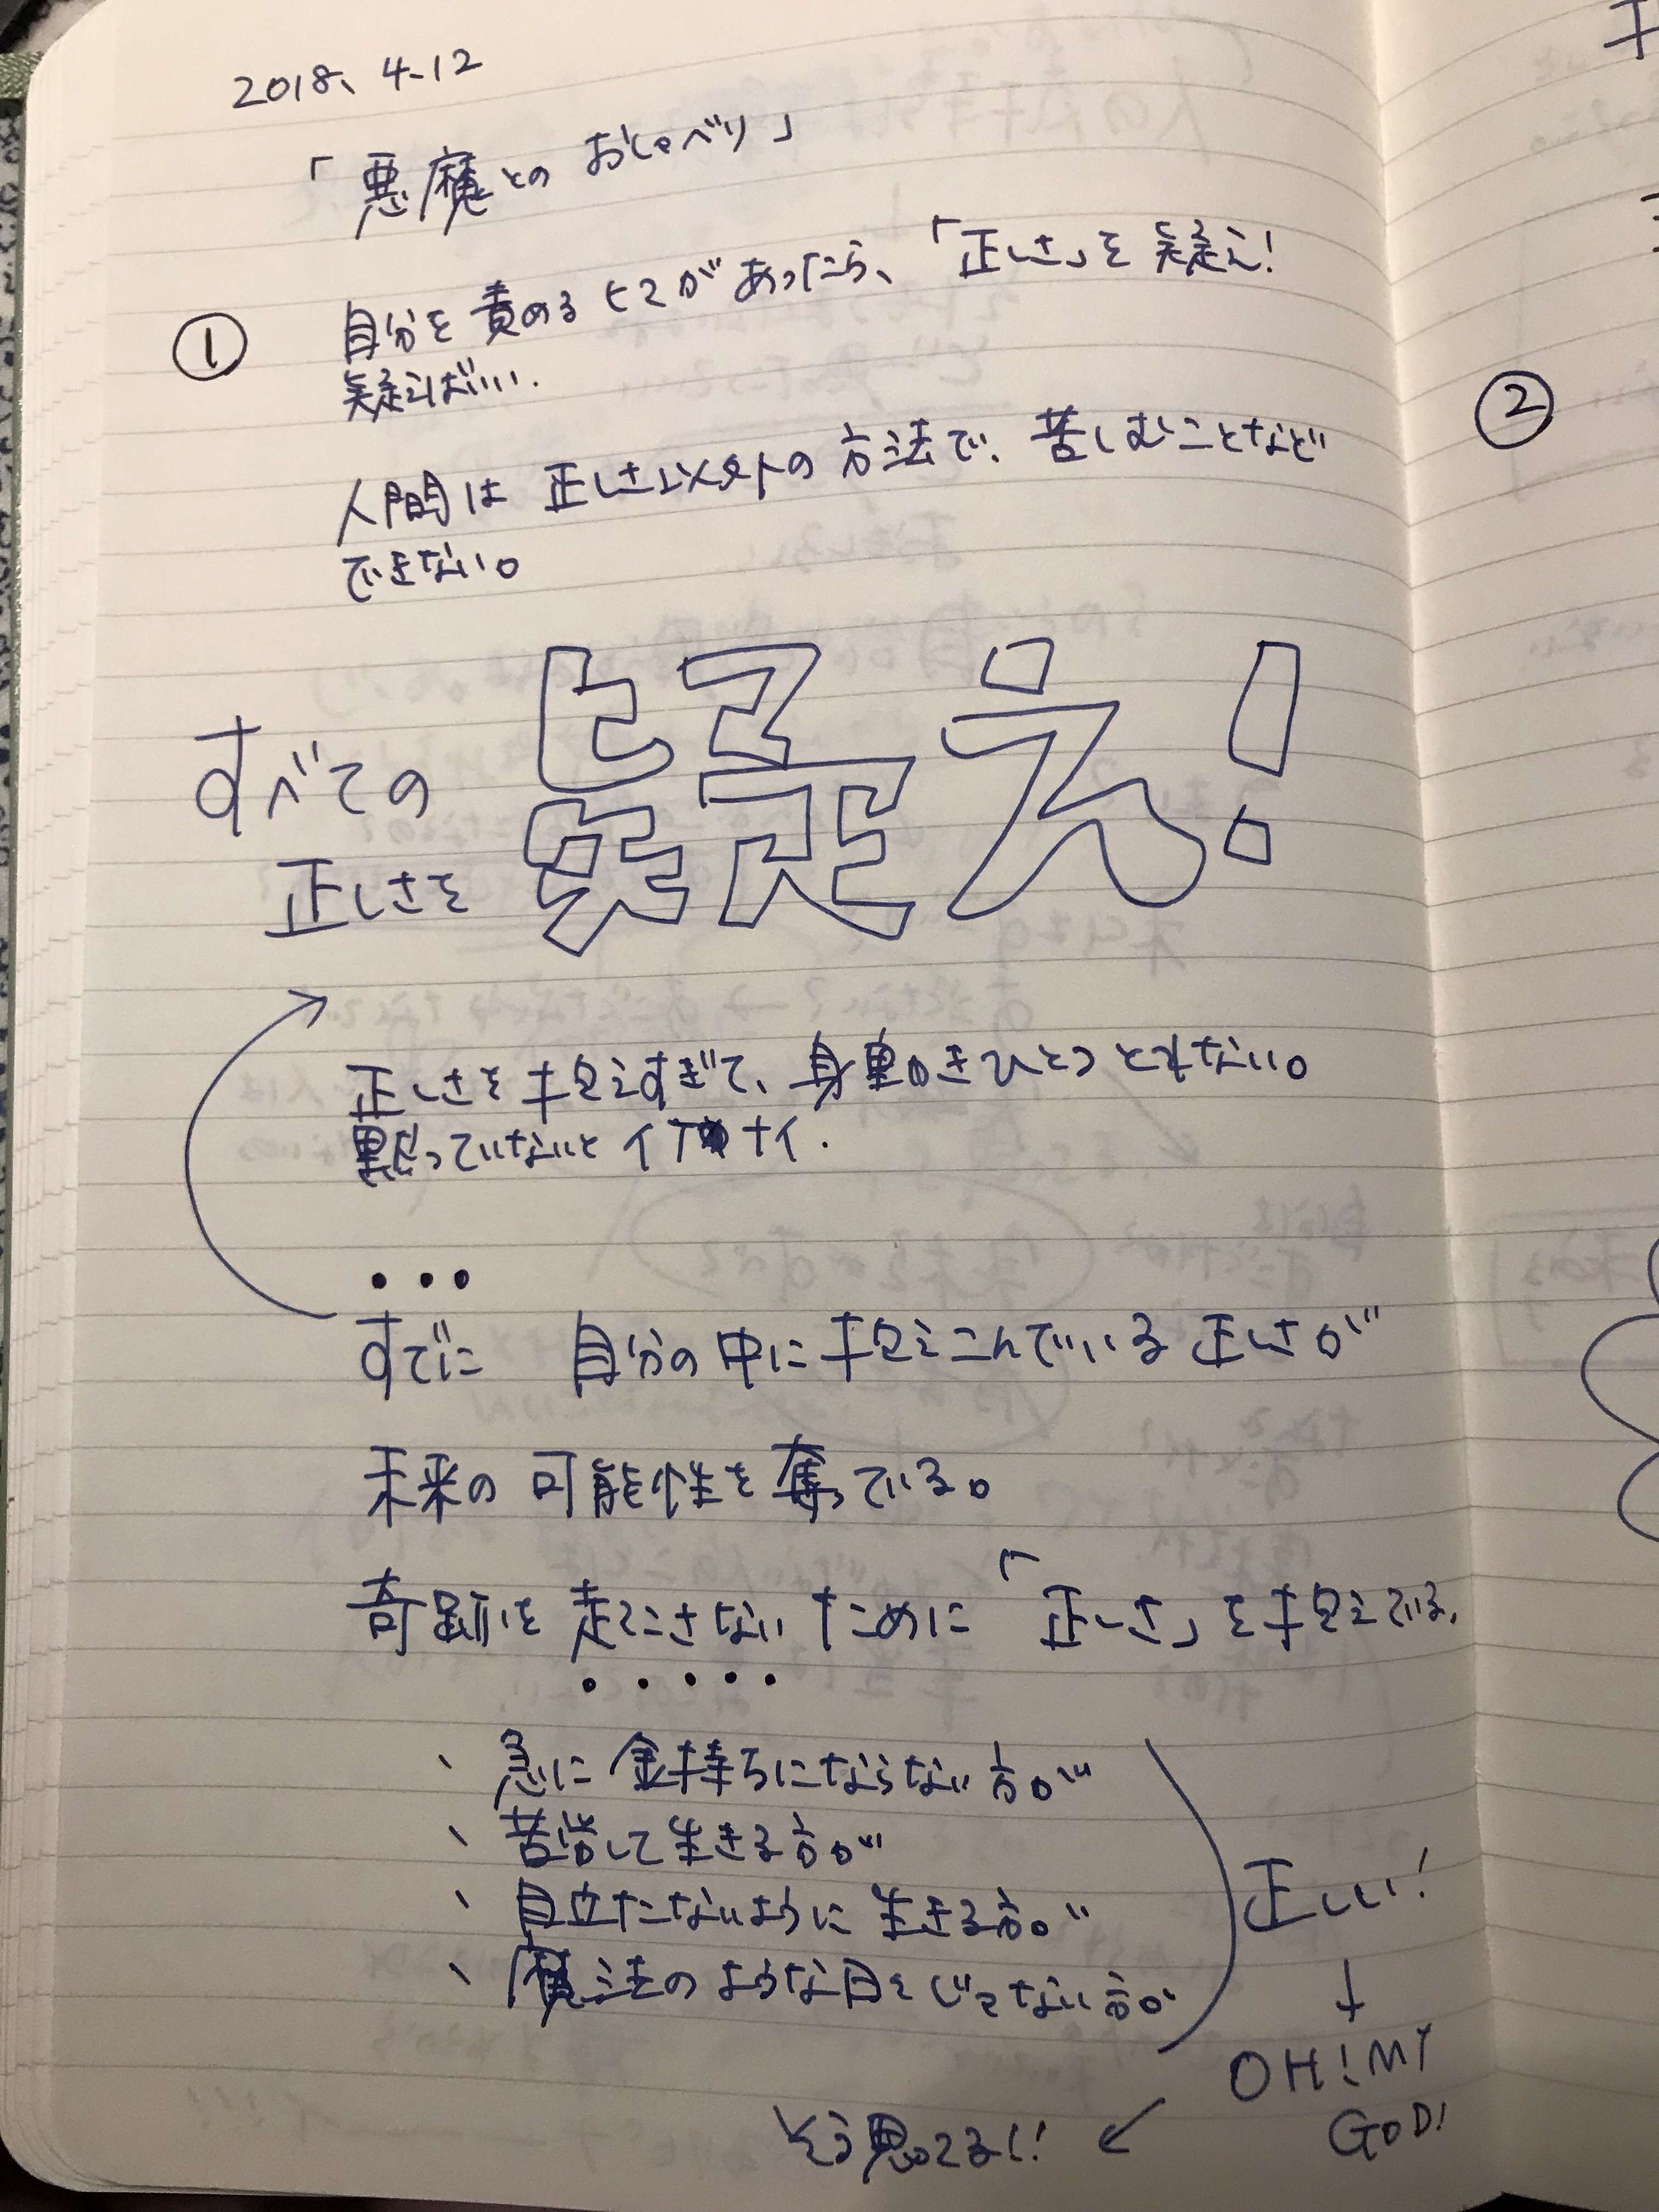 2018、4.12
「悪魔との おしゃべり」
① 自分を責めるヒマがあったら、「正しさ」を疑え!
疑えばいい.
人間は 正しさ以外の方法で、苦しむことなど
できない。
すべての
正しさを 疑え!
正しさを抱えすぎて、身動きひとつとれない。
黙っていないとイケナイ.
すでに 自分の中に抱えこんでいる正しさが
未来の可能性を奪っている。
奇跡を起こさないために「正しさ」を抱えている.
、急に金持ちにならない方が
、苦労して生きる方が
、目立たないように生きる方が
、魔法のような日々じゃない方が
正しい!
↓
OH! MY
GOD!
そう思ってるし!
②